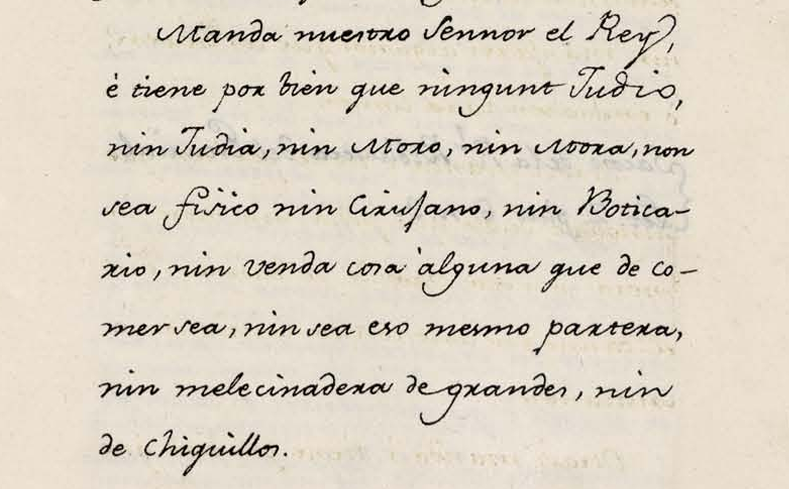 Manda nuestro Sennor el Rey,
é tiene por bien que ningunt Judio,
nin Judia, nin Moro, nin Mora, non
sea fisico nin Cirujano, nin Botica-
rio, nin venda cosa alguna que de co-
mer sea, nin sea eso mesmo partera,
nin melecinadera de grandes, nin
de Chiquillos.